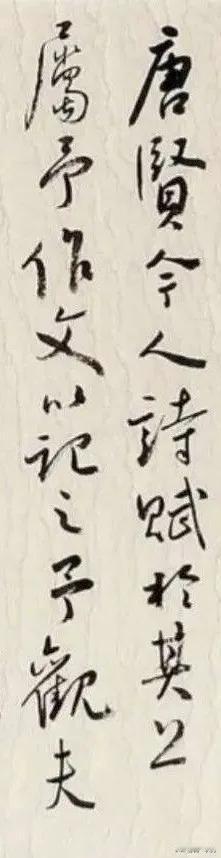 唐賢今人詩賦於其上
屬予作文以記之予觀夫